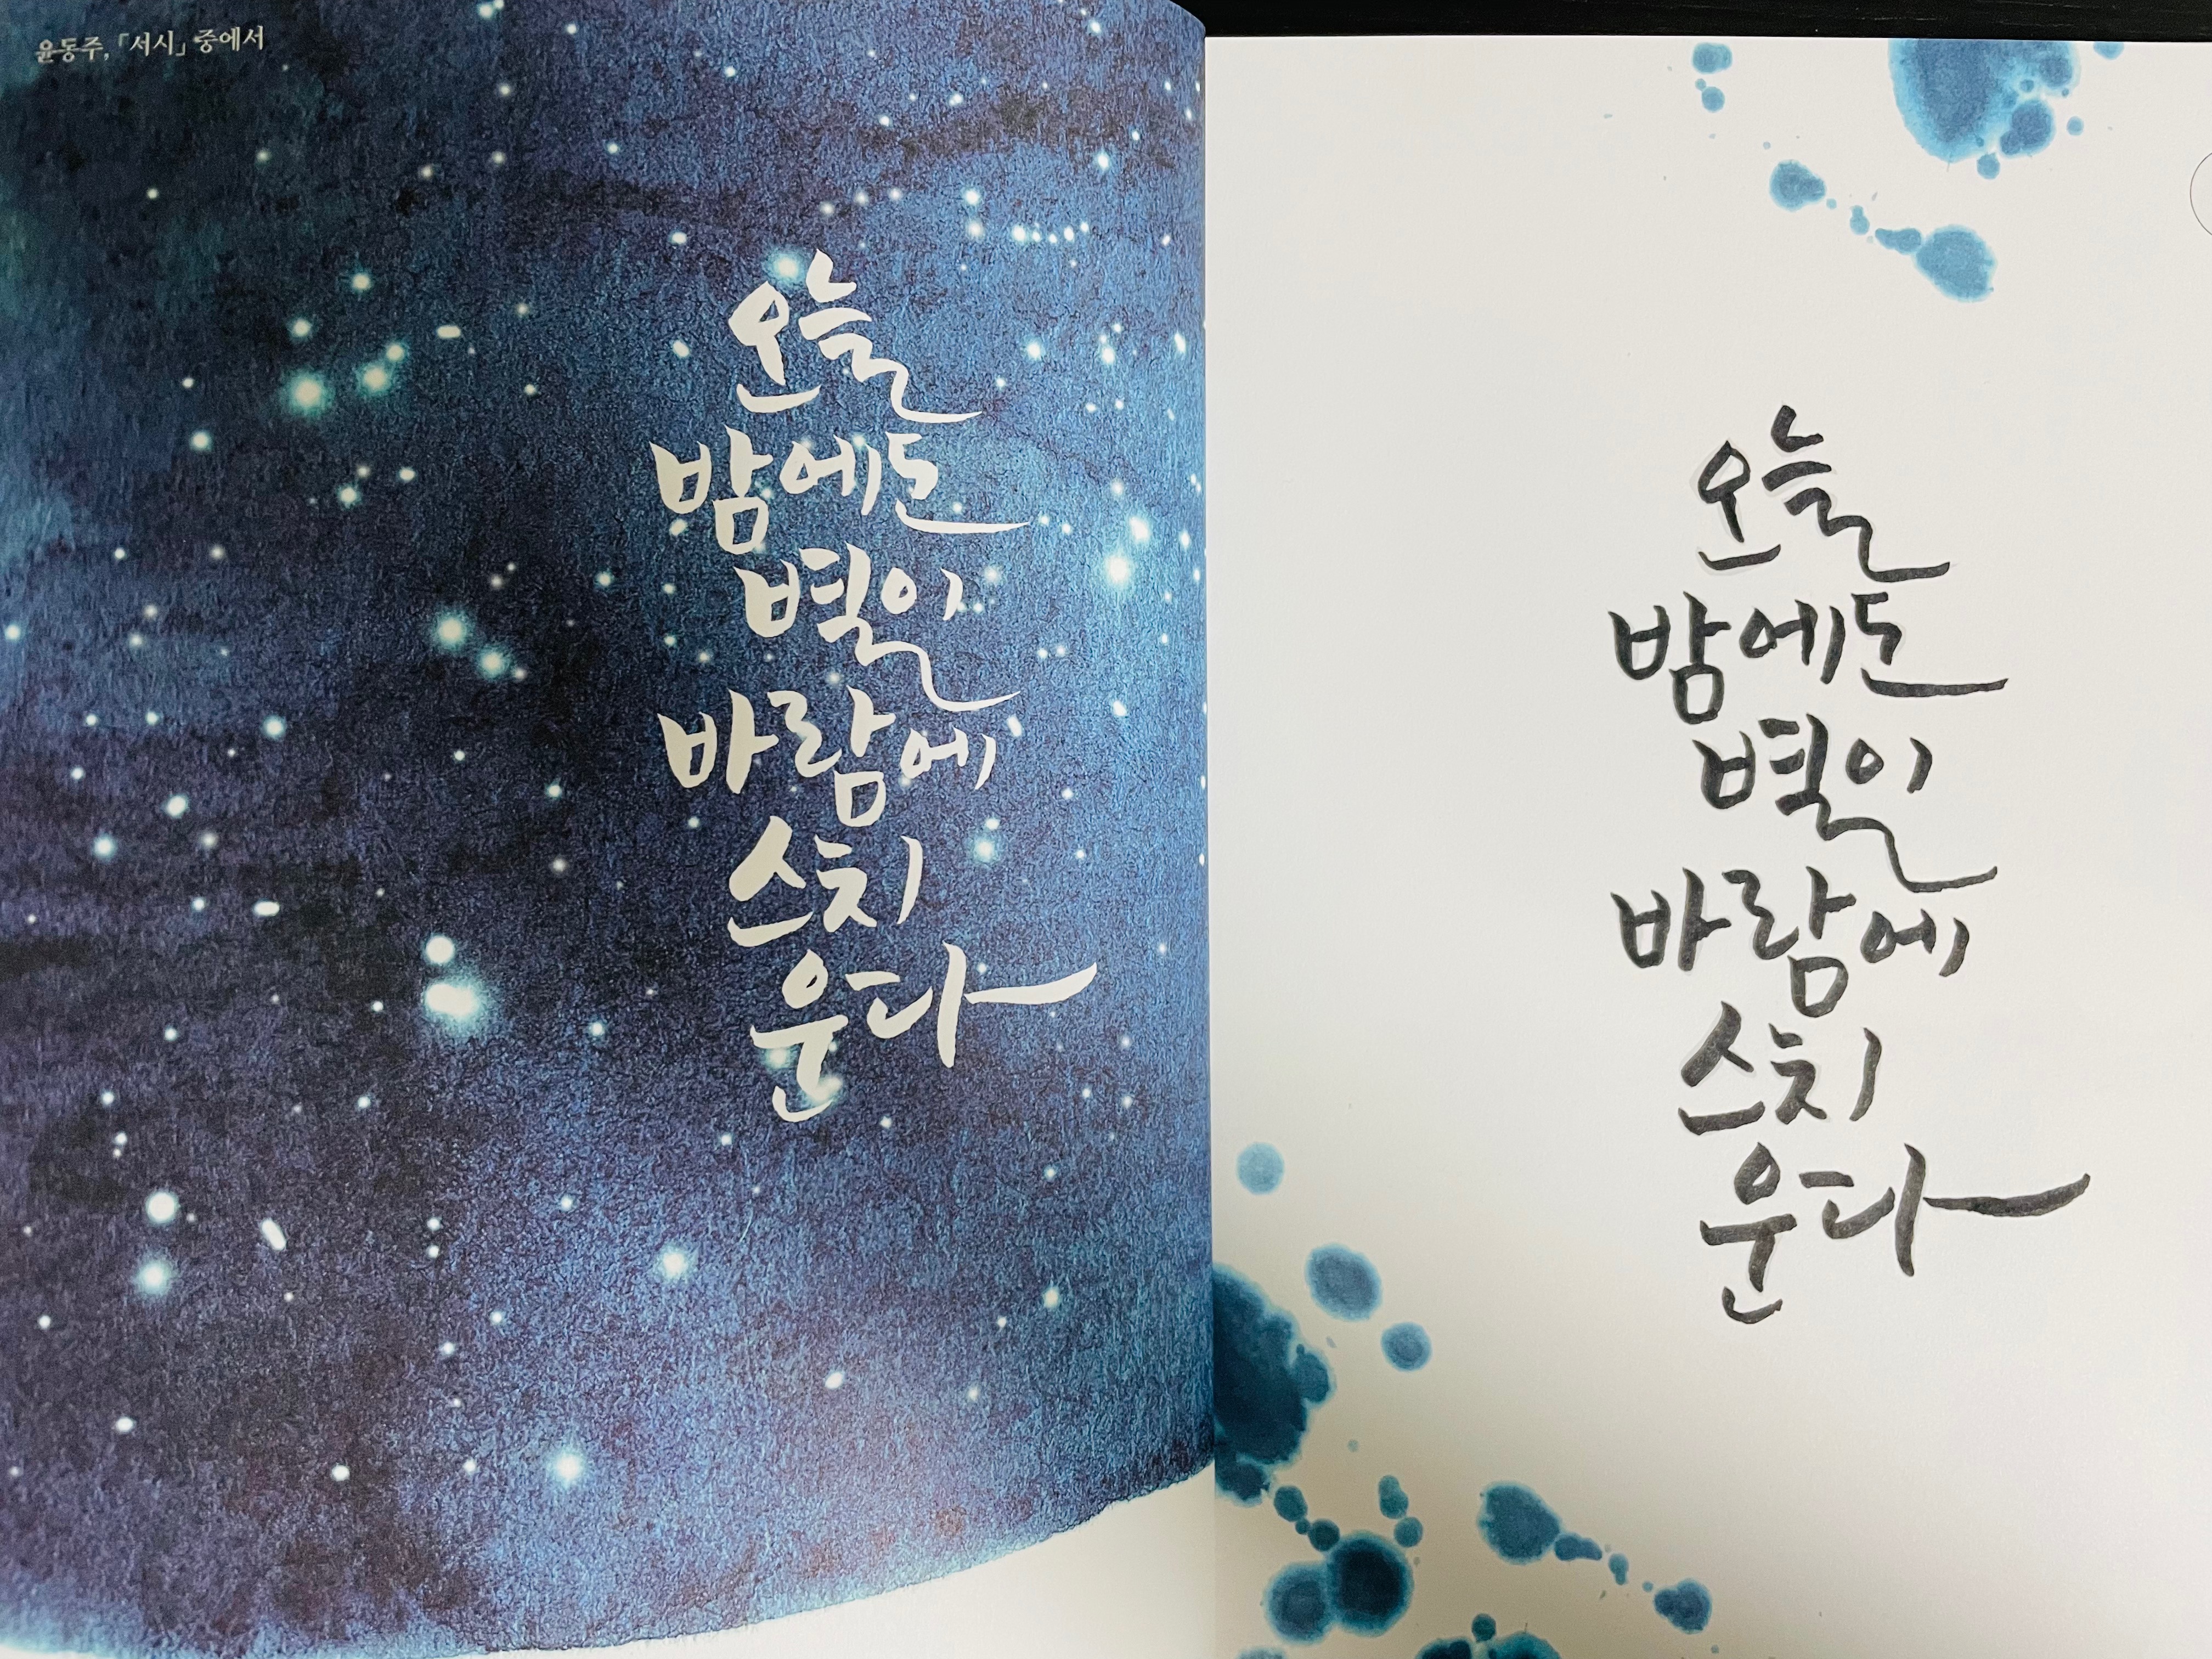 윤동주, 「서시」 중에서
오늘
밤에도
별이
바람에
스치
운다
오늘
밤에도
별이
바람에
스치
운다